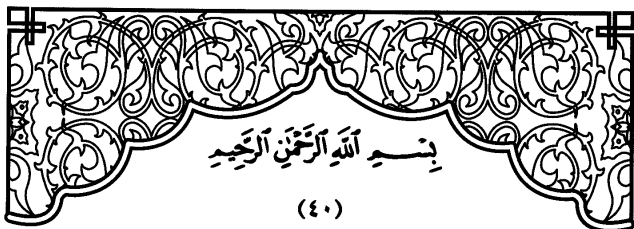 بِسْمِ ٱللَّهِ ٱلرَّحْمَٰنِ ٱلرَّحِيمِ
(٤٠)